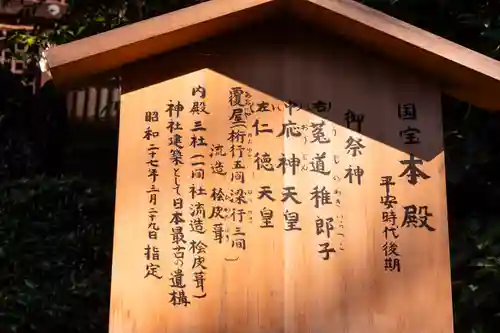 国宝 本殿
平安時代後期
御祭神
(右)菟道稚郎子
(中)応神天皇
(左)仁徳天皇
覆屋(桁行五間 梁行三間
流造 桧皮葺)
内殿三社(一間社流造 桧皮葺)
神社建築として日本最古の遺構
昭和二十七年三月二十九日指定